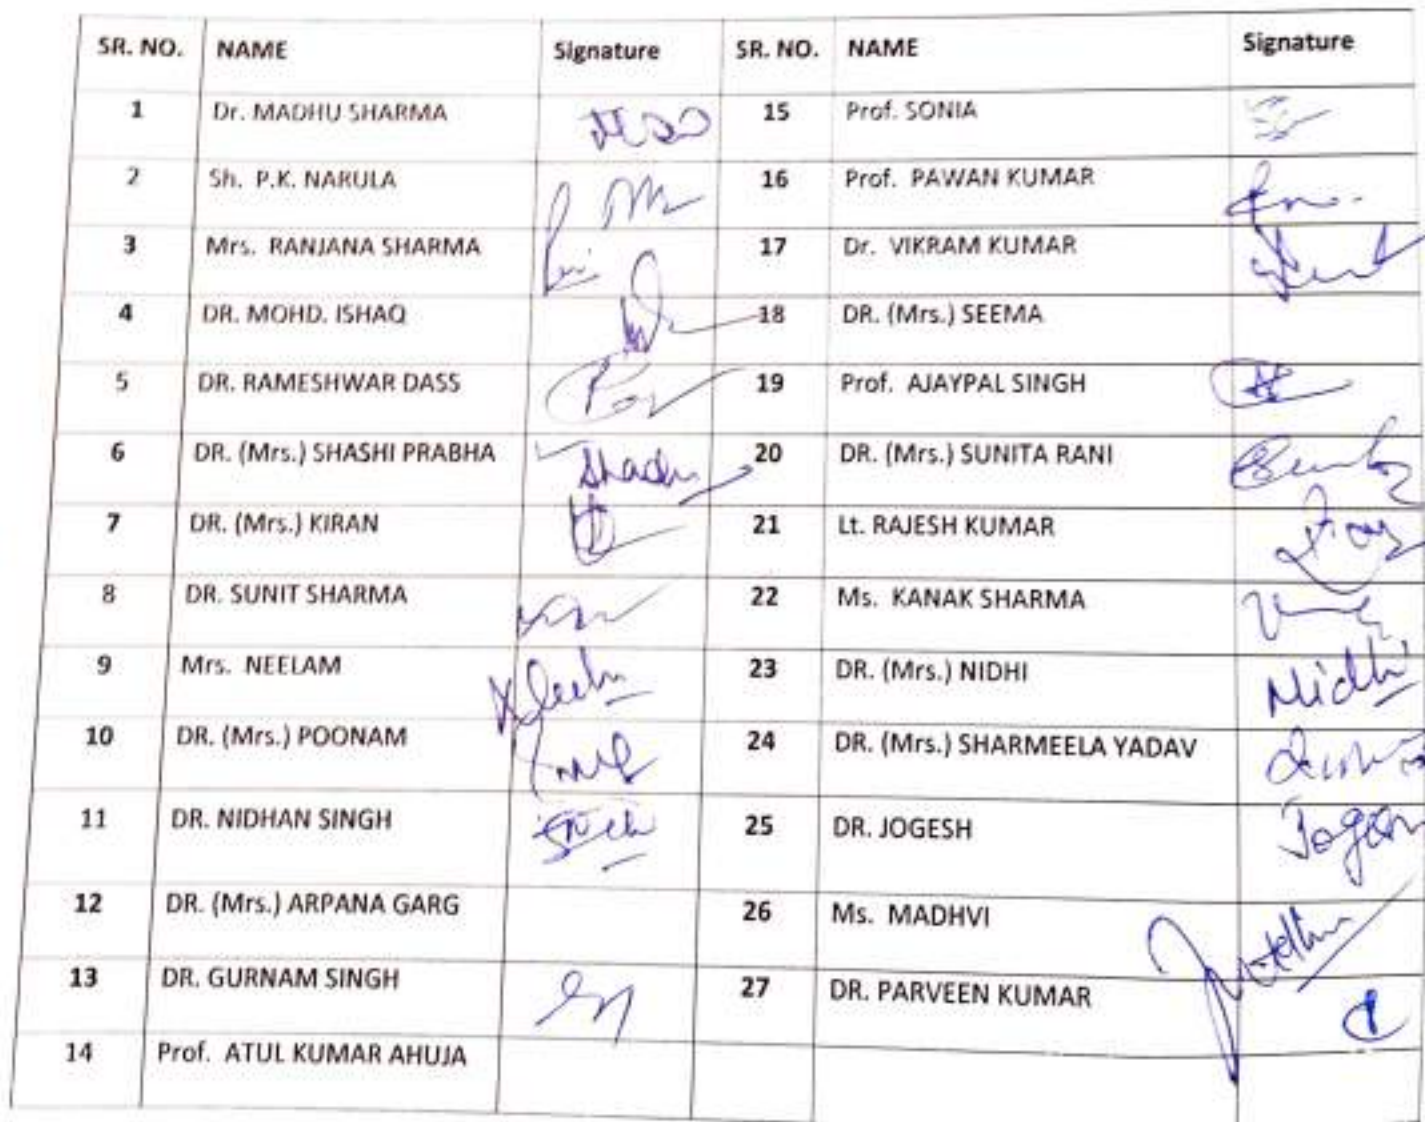 SR. NO. NAME Signature SR. NO. NAME Signature
1 Dr. MADHU SHARMA 15 Prof. SONIA
2 Sh. P.K. NARULA 16 Prof. PAWAN KUMAR
3 Mrs. RANJANA SHARMA 17 Dr. VIKRAM KUMAR
4 DR. MOHD. ISHAQ 18 DR. (Mrs.) SEEMA
5 DR. RAMESHWAR DASS 19 Prof. AJAYPAL SINGH
6 DR. (Mrs.) SHASHI PRABHA 20 DR. (Mrs.) SUNITA RANI
7 DR. (Mrs.) KIRAN 21 Lt. RAJESH KUMAR
8 DR. SUNIT SHARMA 22 Ms. KANAK SHARMA
9 Mrs. NEELAM 23 DR. (Mrs.) NIDHI Nidhi
10 DR. (Mrs.) POONAM 24 DR. (Mrs.) SHARMEELA YADAV
11 DR. NIDHAN SINGH 25 DR. JOGESH
12 DR. (Mrs.) ARPANA GARG 26 Ms. MADHVI
13 DR. GURNAM SINGH 27 DR. PARVEEN KUMAR
14 Prof. ATUL KUMAR AHUJA